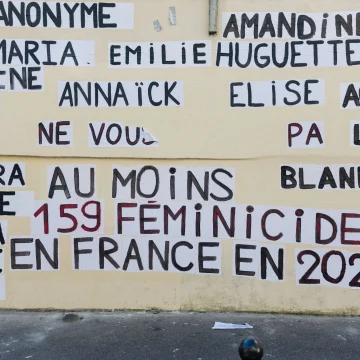 ANONYME AMANDIN
MARIA EMILIE HUGUETTE
NE ANNAÏCK ELISE
NE VOUS PA
RA AU MOINS BLAN
159 FÉMINICIDE
EN FRANCE EN 202